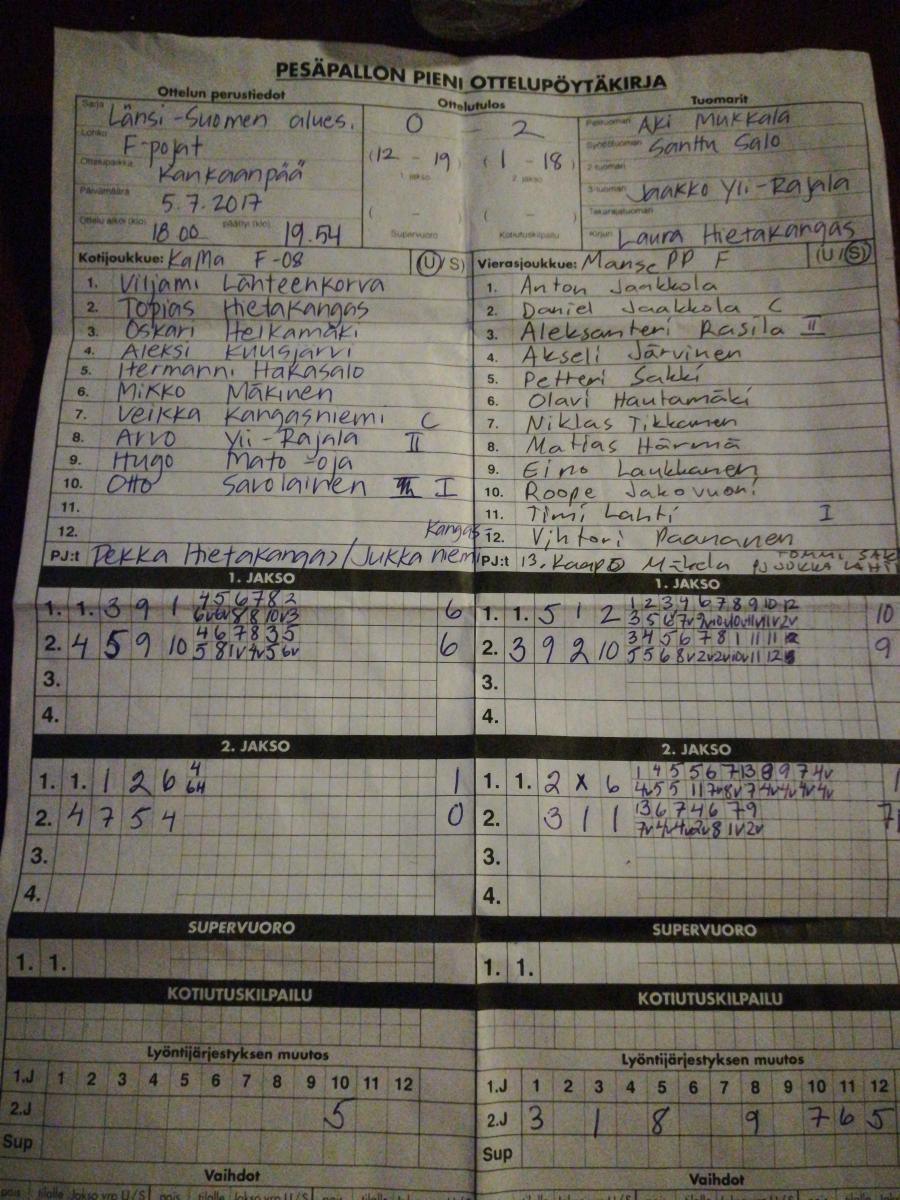 PESÄPALLON PIENI OTTELUPÖYTÄKIRJA
Ottelun perustiedot
Ottelutulos
Tuomarit
Sarja Länsi-Suomen alues.
Lohko F-pojat
Ottelupaikka Kankaanpää
Päivämäärä 5.7.2017
Ottelu alkoi (klo) 18 00 päättyi (klo) 19.54
0 - 2
(12 - 19) (1 - 18)
1. jakso 2. jakso
( - ) ( - )
Supervuoro Kotiutuskilpailu
Pelituomari Aki Mukkala
Syöttötuomari Santtu Salo
2-tuomari
3-tuomari Jaakko Yli-Rajala
Takarajatuomari
Kirjuri Laura Hietakangas
Kotijoukkue: KaMa F-08 (U/S)
1. Viljami Lähteenkorva
2. Topias Hietakangas
3. Oskari Heikamäki
4. Aleksi Kuusjärvi
5. Hermanni Hakasalo
6. Mikko Mäkinen
7. Veikka Kangasniemi C
8. Arvo Yli-Rajala II
9. Hugo Mato-oja
10. Otto Savolainen I
11.
12.
PJ:t Pekka Hietakangas/Jukka Kangasniemi
Vierasjoukkue: Manse PP F (U/S)
1. Anton Jaakkola
2. Daniel Jaakkola C
3. Aleksanteri Rasila II
4. Akseli Järvinen
5. Petteri Sakki
6. Olavi Hautamäki
7. Niklas Tikkanen
8. Matias Härmä
9. Eino Laukkanen
10. Roope Jakovuori
11. Timi Lahti I
12. Vihtori Paananen
PJ:t 13. Kaapo Mäkelä TOMMI SAK
PJ JUKKA LAHTI
1. JAKSO
1. 1. 3 9 1 4 5 6 7 8 2 6
2. 4 5 9 10 4 6 7 8 3 5 6
3.
4.
1. JAKSO
1. 1. 5 1 2 1 2 3 4 6 7 8 9 10 12 10
2. 3 9 2 10 3 4 5 6 7 8 1 11 11 9
3.
4.
2. JAKSO
1. 1. 1 2 6 4 1
2. 4 7 5 4 0
3.
4.
2. JAKSO
1. 1. 2 x 6 1 4 5 5 6 7 13 8 9 7 4v
2. 3 1 1 13 6 7 4 6 7 9 7
3.
4.
SUPERVUORO
1. 1.
SUPERVUORO
1. 1.
KOTIUTUSKILPAILU
KOTIUTUSKILPAILU
Lyöntijärjestyksen muutos
1.J 1 2 3 4 5 6 7 8 9 10 11 12
2.J 5
Sup
Lyöntijärjestyksen muutos
1.J 1 2 3 4 5 6 7 8 9 10 11 12
2.J 3 1 8 9 7 6 5
Sup
Vaihdot
Vaihdot